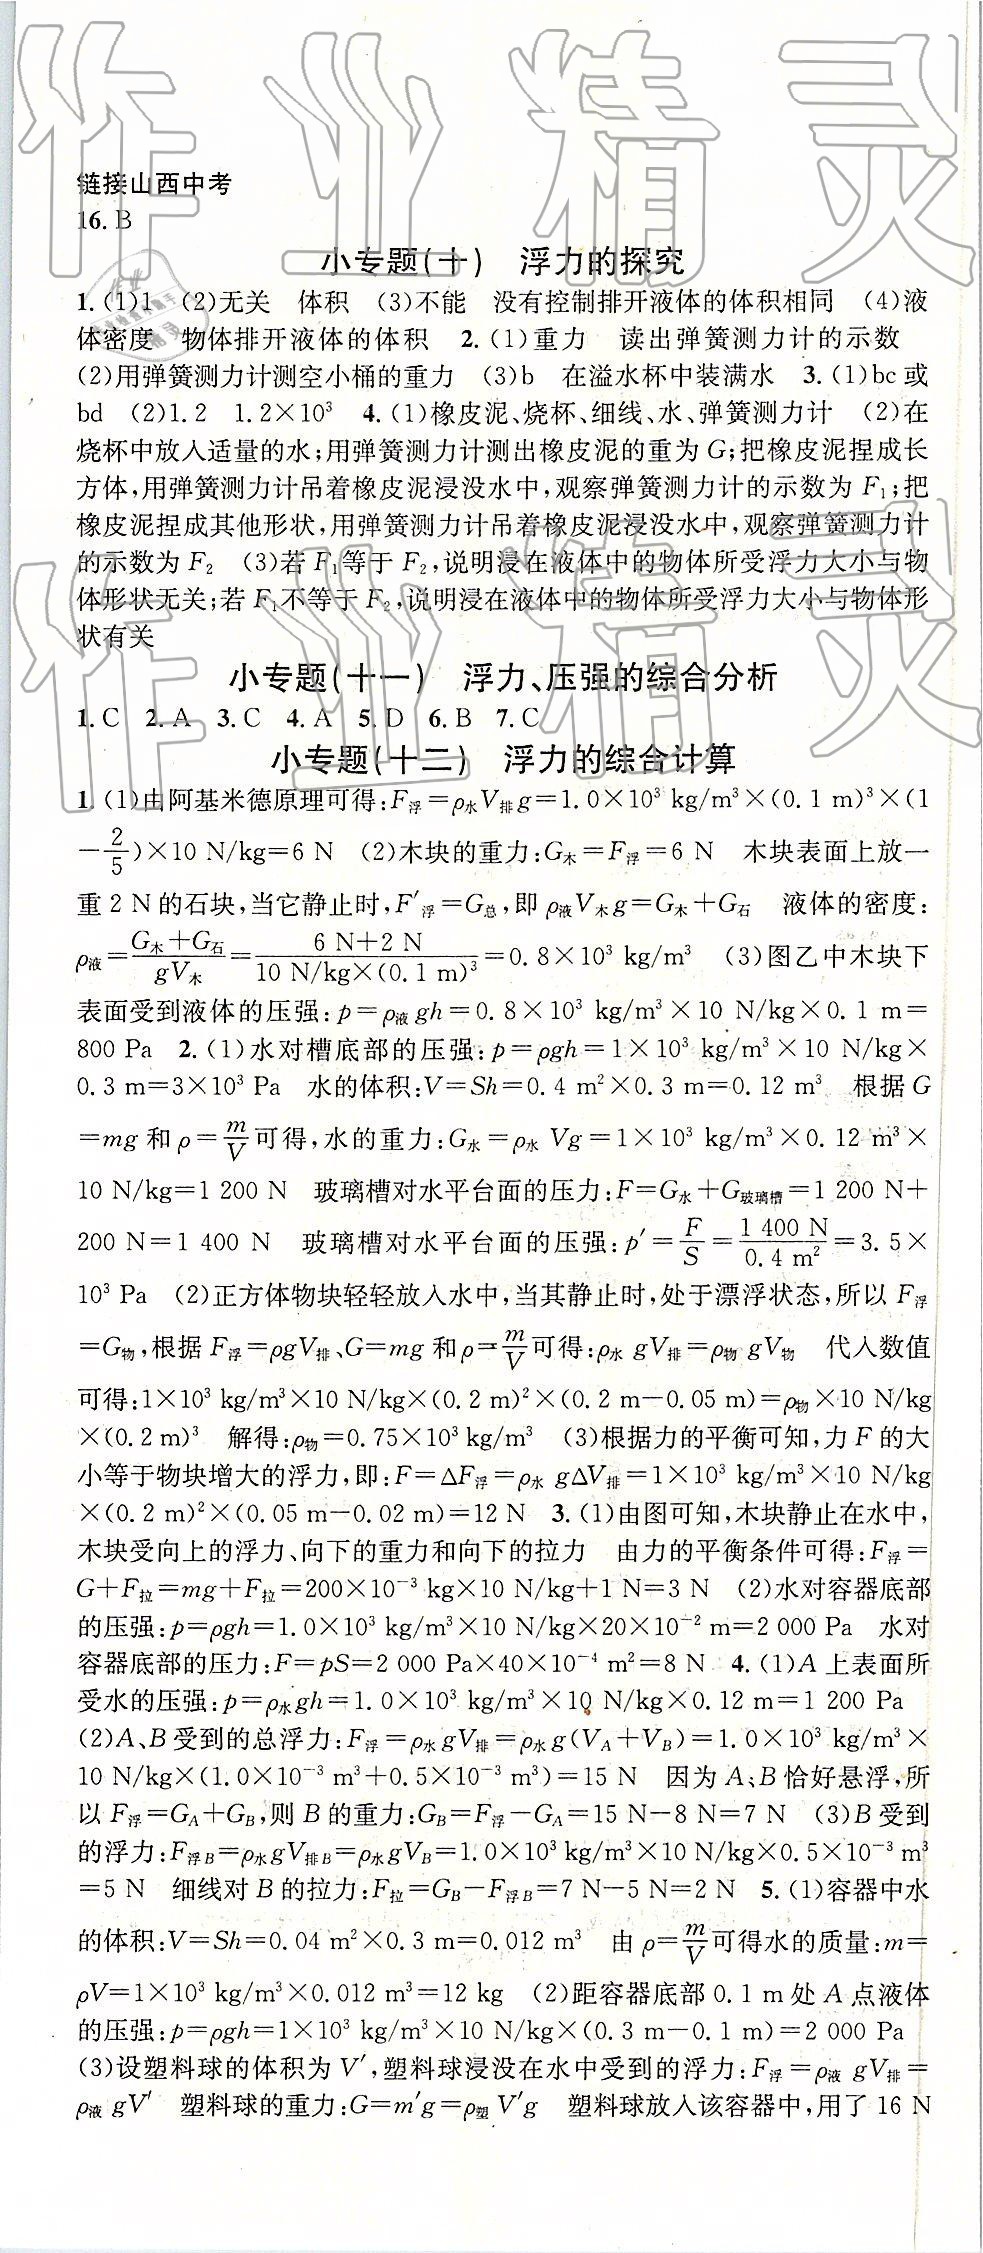 作业精灵
链接山西中考
16. B
小专题(十) 浮力的探究
1. (1)1 (2)无关 体积 (3)不能 没有控制排开液体的体积相同 (4)液
体密度 物体排开液体的体积 2. (1)重力 读出弹簧测力计的示数
(2)用弹簧测力计测空小桶的重力 (3)b 在溢水杯中装满水 3. (1)bc或
bd (2)1.2 1.2×10³ 4. (1)橡皮泥、烧杯、细线、水、弹簧测力计 (2)在
烧杯中放入适量的水;用弹簧测力计测出橡皮泥的重为G;把橡皮泥捏成长
方体,用弹簧测力计吊着橡皮泥浸没水中,观察弹簧测力计的示数为F₁;把
橡皮泥捏成其他形状,用弹簧测力计吊着橡皮泥浸没水中,观察弹簧测力计
的示数为F₂ (3)若F₁等于F₂,说明浸在液体中的物体所受浮力大小与物
体形状无关;若F₁不等于F₂,说明浸在液体中的物体所受浮力大小与物体形
状有关
作业精灵
小专题(十一) 浮力、压强的综合分析
1. C 2. A 3. C 4. A 5. D 6. B 7. C
小专题(十二) 浮力的综合计算
1. (1)由阿基米德原理可得:F浮=ρ水V排g=1.0×10³ kg/m³×(0.1 m)³×(1
-2/5)×10 N/kg=6 N (2)木块的重力:G木=F浮=6 N 木块表面上放一
重2 N的石块,当它静止时,F′浮=G总,即ρ液V木g=G木+G石 液体的密度:
ρ液=(G木+G石)/(gV木)=(6 N+2 N)/(10 N/kg×(0.1 m)³)=0.8×10³ kg/m³ (3)图乙中木块下
表面受到液体的压强:p=ρ液gh=0.8×10³ kg/m³×10 N/kg×0.1 m=
800 Pa 2. (1)水对槽底部的压强:p=ρgh=1×10³ kg/m³×10 N/kg×
0.3 m=3×10³ Pa 水的体积:V=Sh=0.4 m²×0.3 m=0.12 m³ 根据G
=mg和ρ=m/V可得,水的重力:G水=ρ水Vg=1×10³ kg/m³×0.12 m³×
10 N/kg=1 200 N 玻璃槽对水平台面的压力:F=G水+G玻璃槽=1 200 N+
200 N=1 400 N 玻璃槽对水平台面的压强:p′=F/S=1 400 N/0.4 m²=3.5×
10³ Pa (2)正方体物块轻轻放入水中,当其静止时,处于漂浮状态,所以F浮
=G物,根据F浮=ρgV排、G=mg和ρ=m/V可得:ρ水gV排=ρ物gV物 代入数值
可得:1×10³ kg/m³×10 N/kg×(0.2 m)²×(0.2 m-0.05 m)=ρ物×10 N/kg
×(0.2 m)³ 解得:ρ物=0.75×10³ kg/m³ (3)根据力的平衡可知,力F的大
小等于物块增大的浮力,即:F=ΔF浮=ρ水gΔV排=1×10³ kg/m³×10 N/kg
×(0.2 m)²×(0.05 m-0.02 m)=12 N 3. (1)由图可知,木块静止在水中,
木块受向上的浮力、向下的重力和向下的拉力 由力的平衡条件可得:F浮=
G+F拉=mg+F拉=200×10⁻³ kg×10 N/kg+1 N=3 N (2)水对容器底部
的压强:p=ρgh=1.0×10³ kg/m³×10 N/kg×20×10⁻² m=2 000 Pa 水对
容器底部的压力:F=pS=2 000 Pa×40×10⁻⁴ m²=8 N 4. (1)A上表面所
受水的压强:p=ρ水gh=1.0×10³ kg/m³×10 N/kg×0.12 m=1 200 Pa
(2)A、B受到的总浮力:F浮=ρ水gV排=ρ水g(V_A+V_B)=1.0×10³ kg/m³×
10 N/kg×(1.0×10⁻³ m³+0.5×10⁻³ m³)=15 N 因为A、B恰好悬浮,所
以F浮=G_A+G_B,则B的重力:G_B=F浮-G_A=15 N-8 N=7 N (3)B受到
的浮力:F浮B=ρ水gV排B=ρ水gV_B=1.0×10³ kg/m³×10 N/kg×0.5×10⁻³ m³
=5 N 细线对B的拉力:F拉=G_B-F浮B=7 N-5 N=2 N 5. (1)容器中水
的体积:V=Sh=0.04 m²×0.3 m=0.012 m³ 由ρ=m/V可得水的质量:m=
ρV=1×10³ kg/m³×0.012 m³=12 kg (2)距容器底部0.1 m处A点液体
的压强:p=ρgh=1×10³ kg/m³×10 N/kg×(0.3 m-0.1 m)=2 000 Pa
(3)设塑料球的体积为V′,塑料球浸没在水中受到的浮力:F浮=ρ液gV排=
ρ液gV′ 塑料球的重力:G=m′g=ρ塑V′g 塑料球放入该容器中,用了16 N